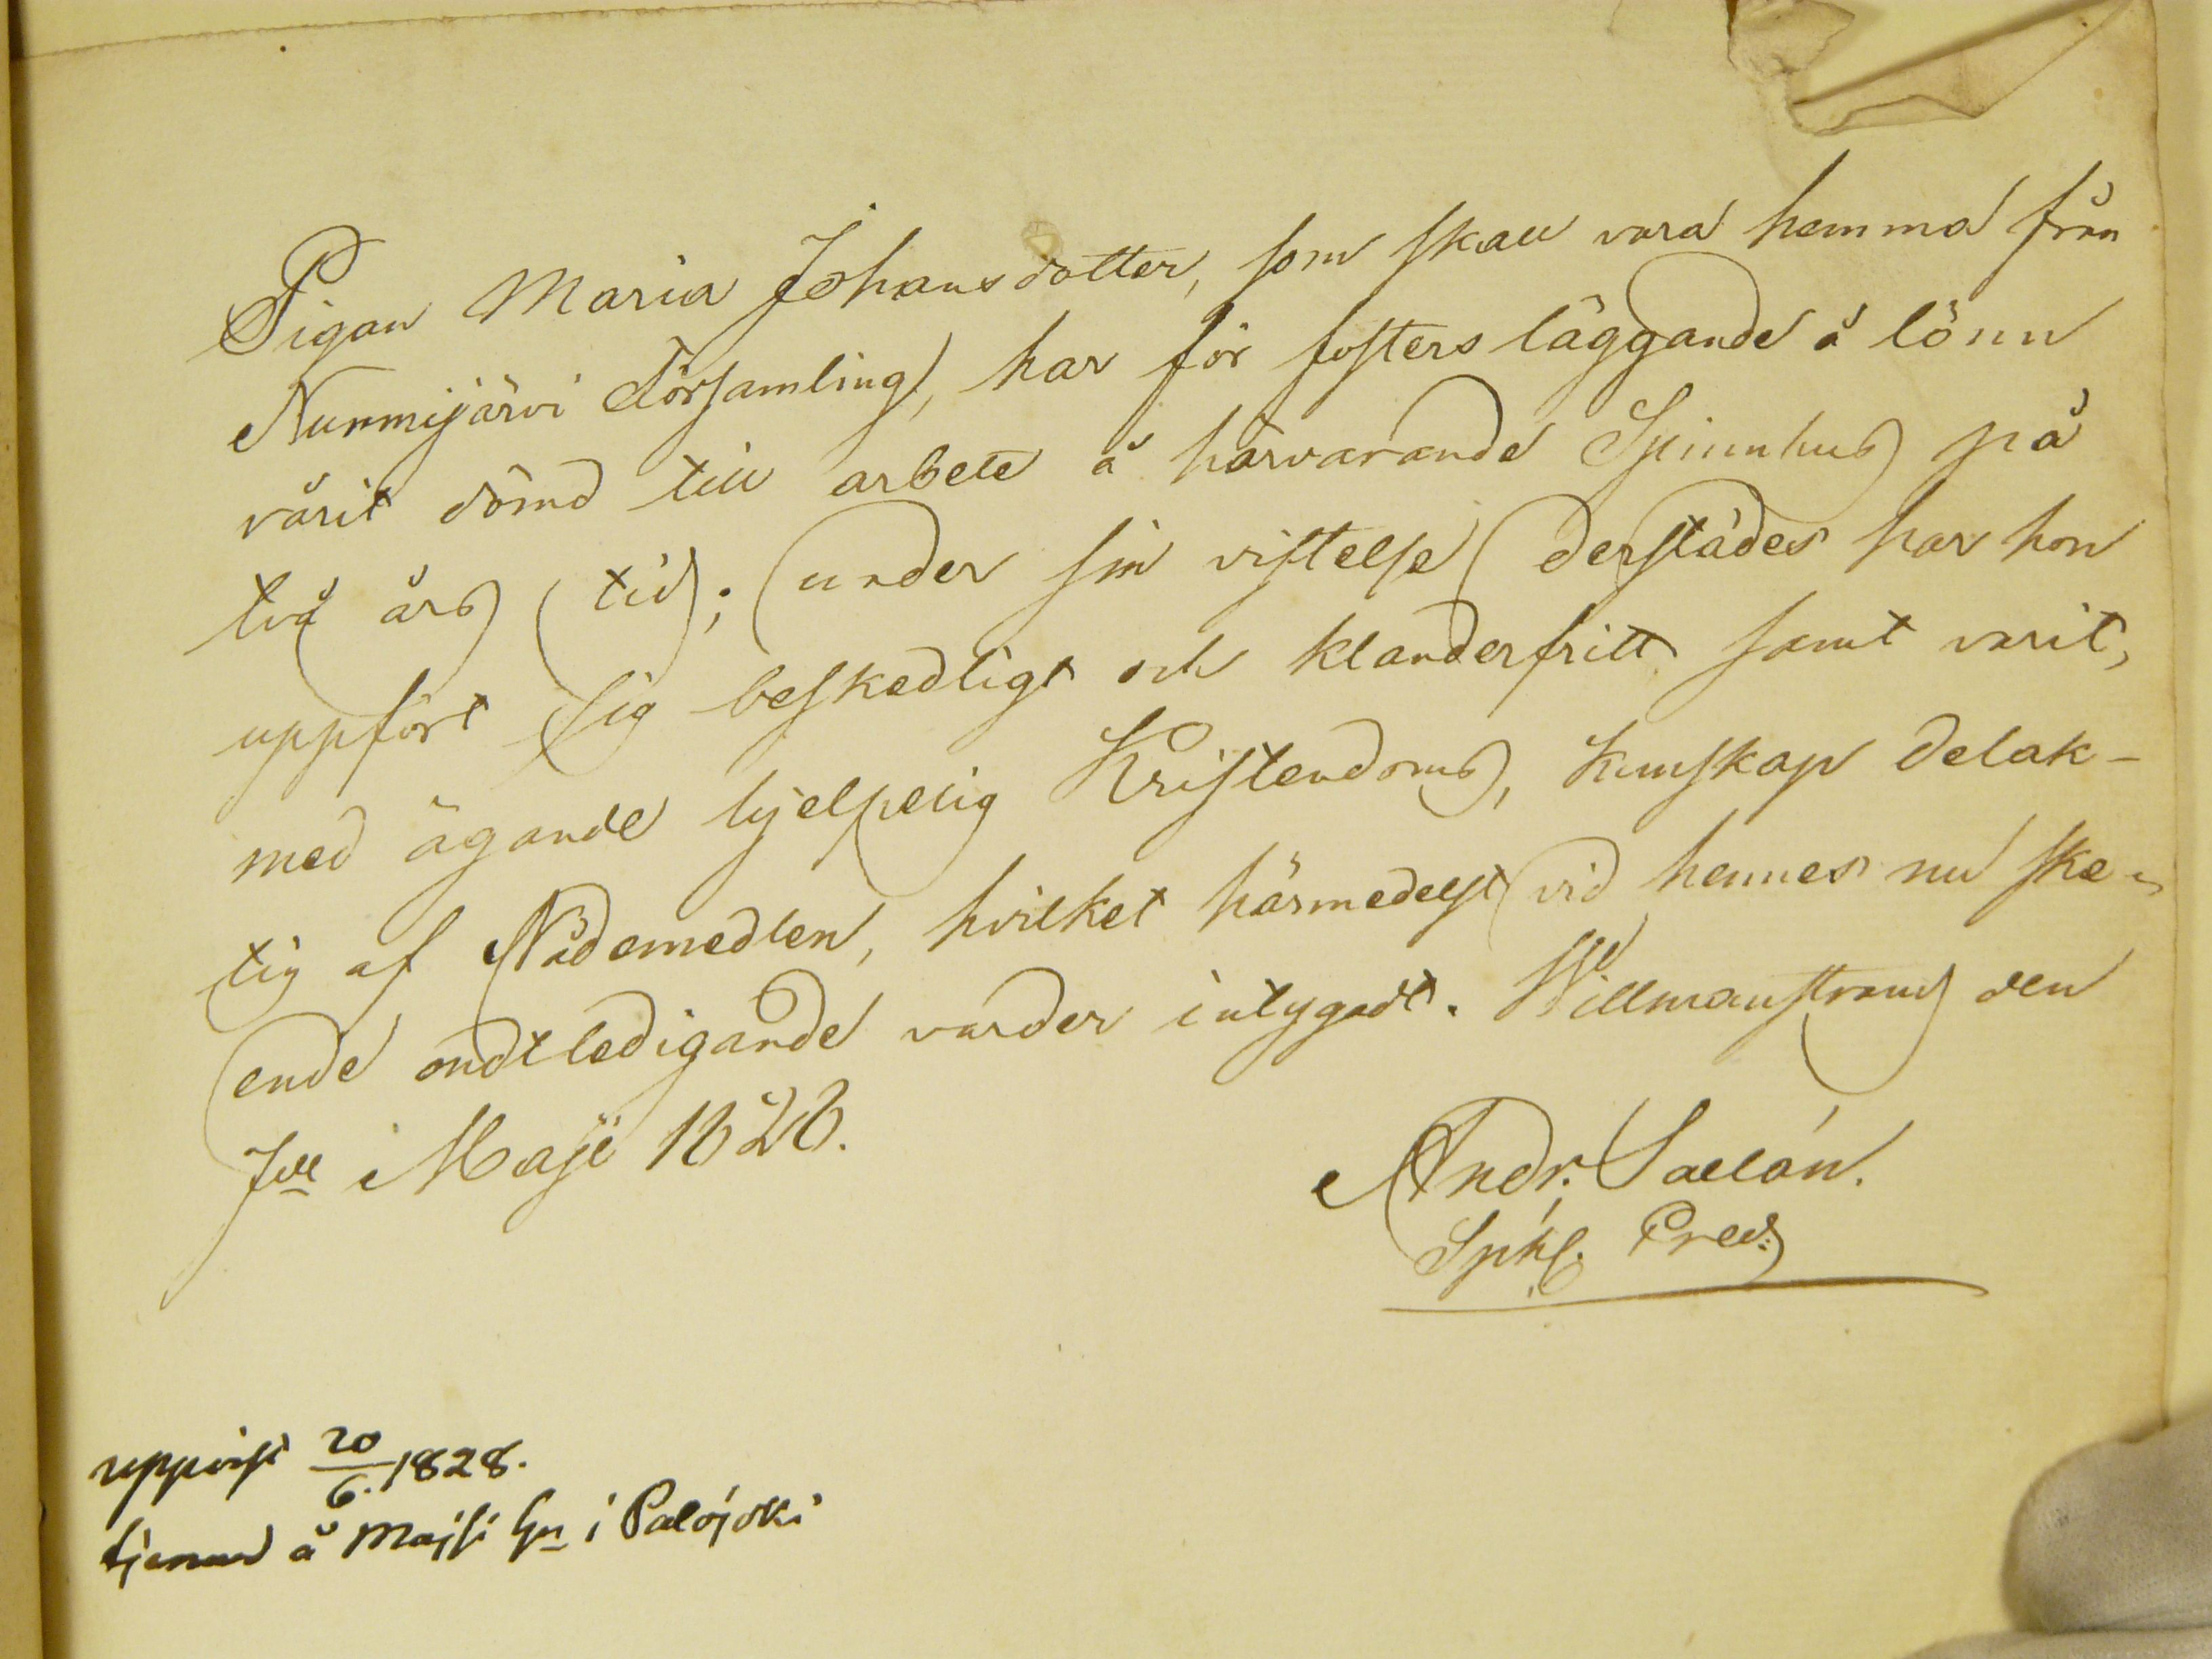 Pigan Maria Johansdotter, som skall vara hemma från
Nurmijärvi Församling, har för fosters läggande å lönn
varit dömd till arbete å härvarande Spinnhus på
två års tid; under sin vistelse derstädes har hon
uppfört sig beskedligt och klanderfritt samt varit,
med ägande hjelpelig Kristendoms, kunskap delak-
tig af Nådemedlen, hvilket härmedelst vid hennes nu ske-
ende endtledigande varder intygadt. Willmanstrand den
7de Maji 1828.
Andr. Sallén.
Sphs. Pred:
uppvist 20/6. 1828.
tjenar å Majsi hn i Palojoki